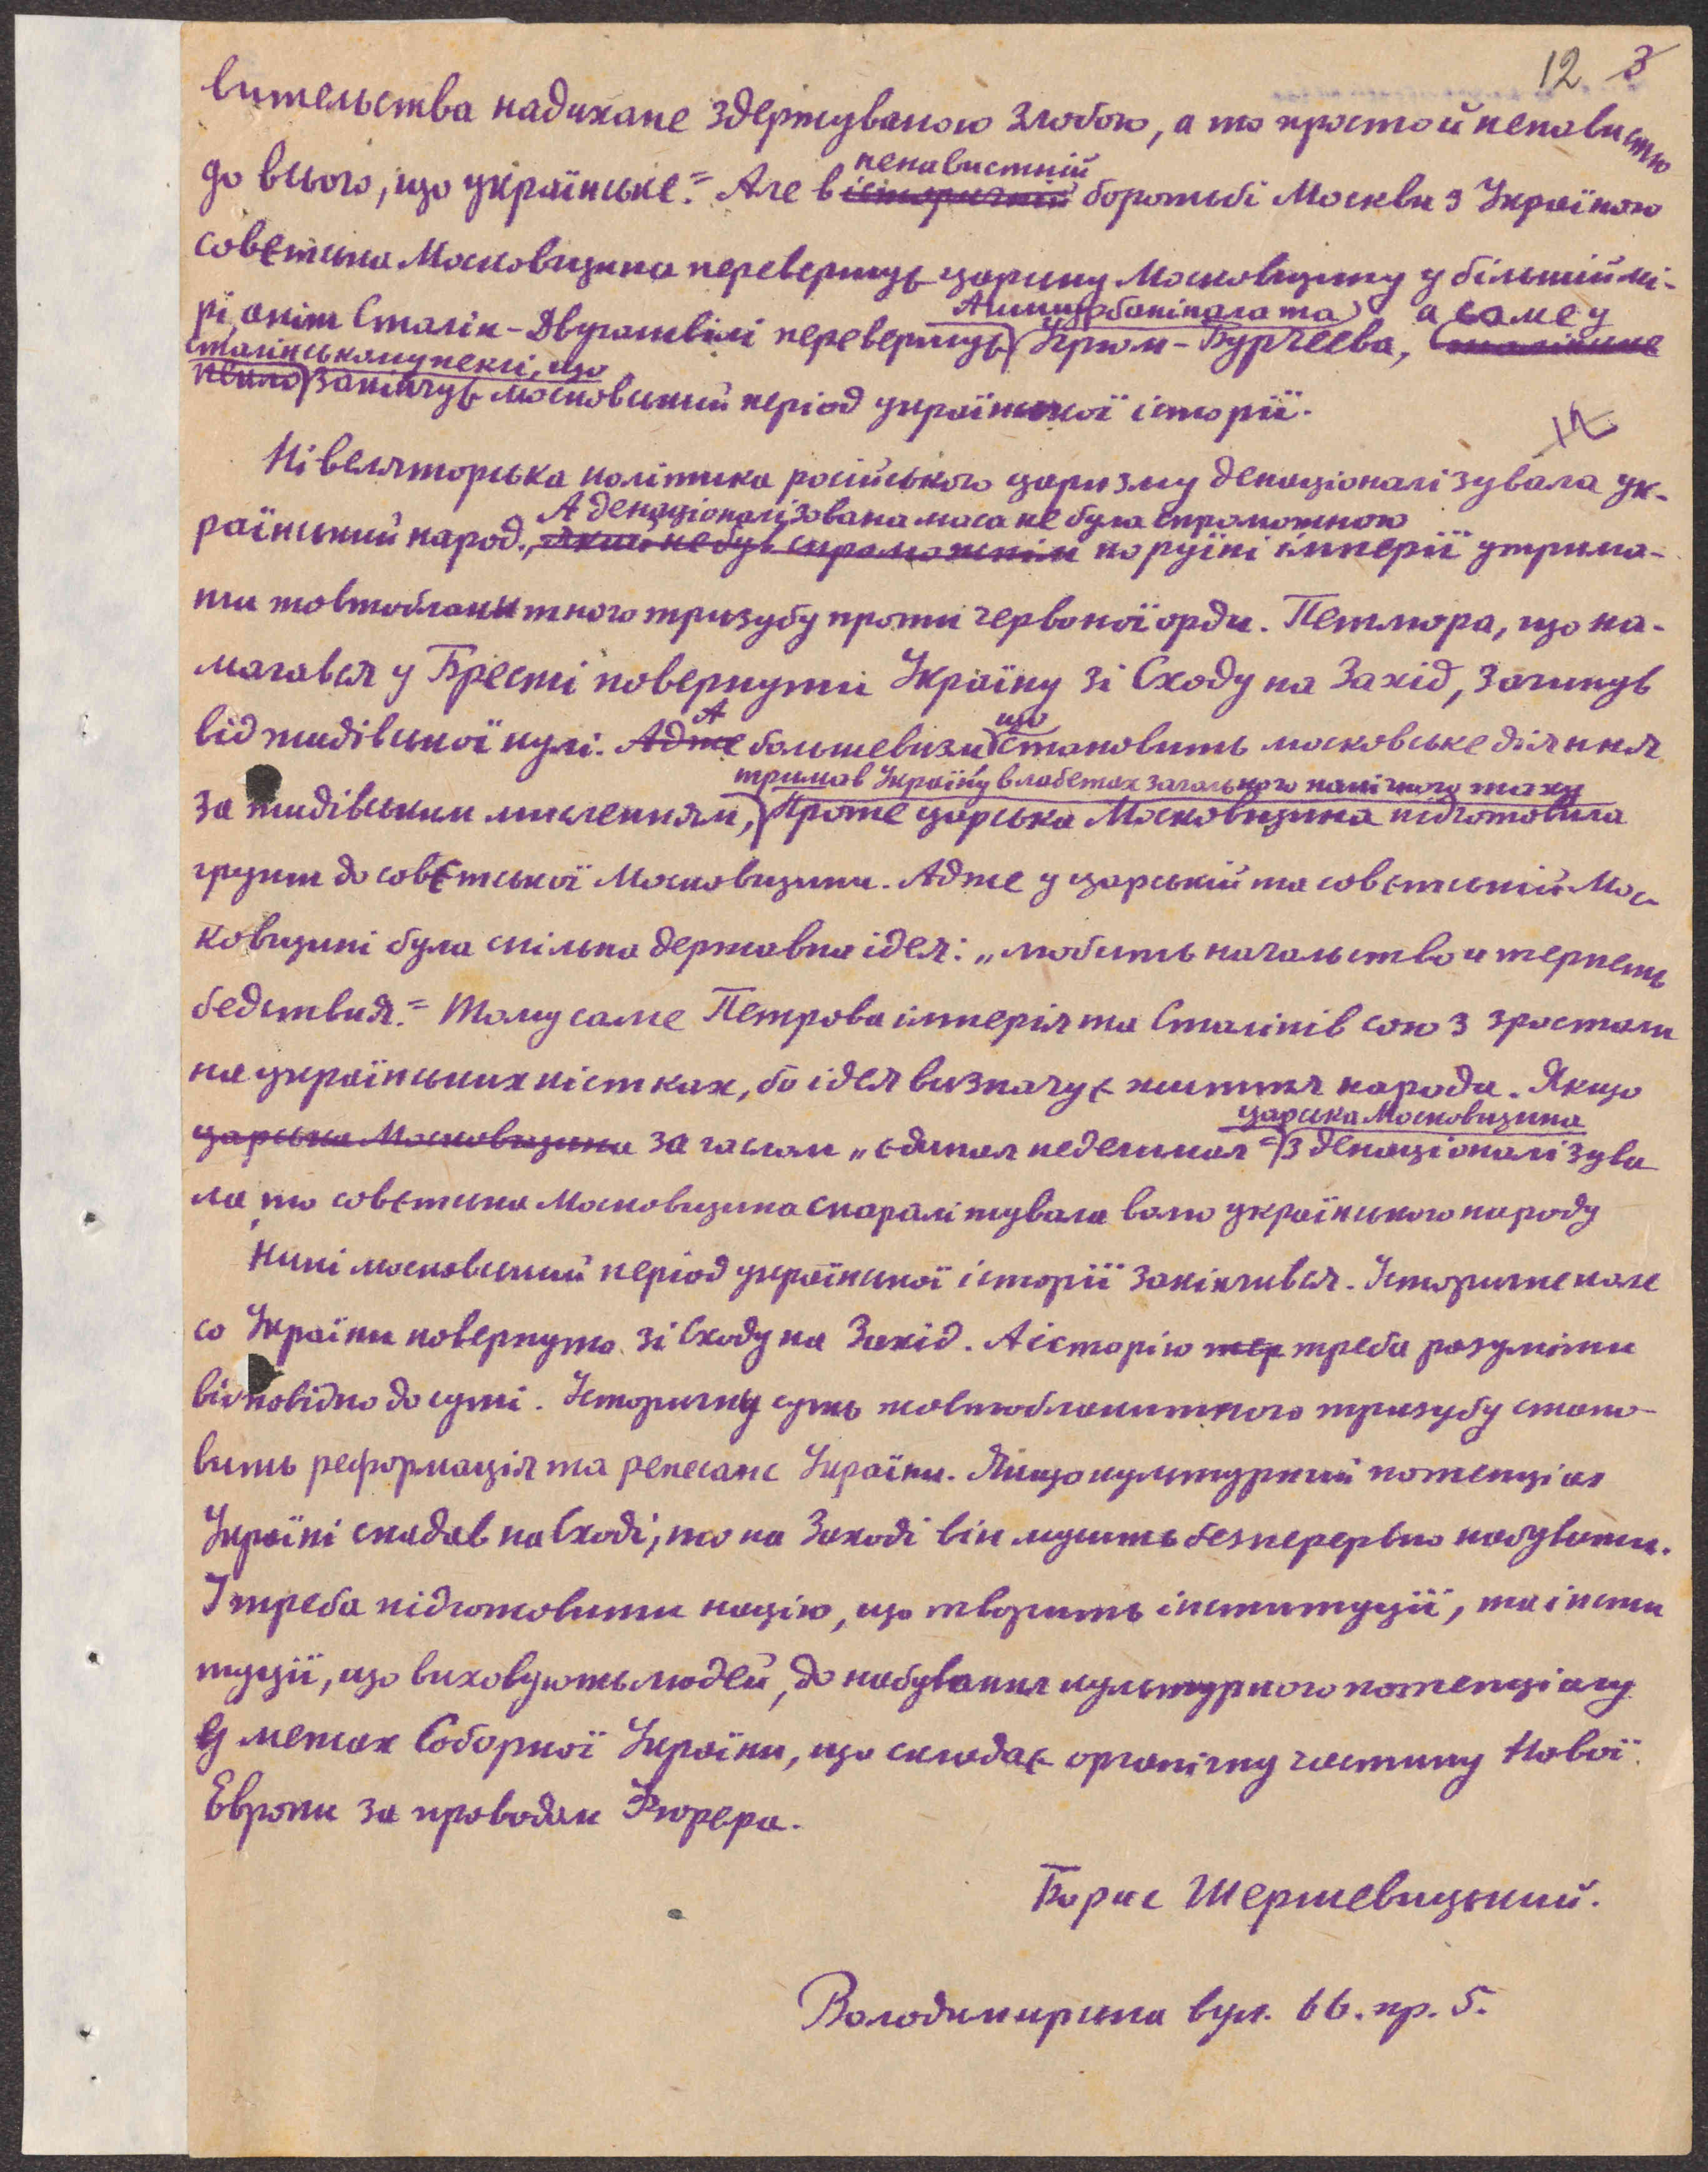 12 3
вительства надихане здержуваною злобою, а то простой ненавистю
ненавистній
до всього, що українське.“ Але в історичній боротьбі Москви з Україною
совєтська Московщина перевершує царську Московщину у більшій мі-
Ашшурбаніпала та а саме у
рі, аніж Сталін-Джугашвілі перевершує Угрюм-Бурчеева, Сталінське
сталінському пеклі, що
пекло закінчує московський період української історії.
12
Нівеляторська політика російського царизму денаціоналізувала ук-
А денаціоналізована маса не була спроможною
раїнський народ, який не був спроможнім по руїні імперії утрима-
ти жовтоблакитного тризубу проти червоної орди. Петлюра, що на-
магався у Бресті повернути Україну зі Сходу на Захід, загинув
А що
від жидівської кулі. Адже большевизм становить московське діяння
тримав Україну в лабетах загального панічного жаху
за жидівським мисленням, Проте царська Московщина підготовила
грунт до совєтської Московщини. Адже у царській та совєтській Мос-
ковщині була спільна державна ідея: „любить начальство и терпеть
бедствия.“ Тому саме Петрова імперія та Сталінів союз зростали
на українських кістках, бо ідея визначує життя народа. Якщо
царська Московщина
царська Московщина за гаслом „єдиная неделимая“ зденаціоналізува
ла, то совєтська Московщина спаралізувала волю українського народу
Нині московський період української історії закінчився. Історичне коле
со України повернуто зі Сходу на Захід. А історію тер треба розуміти
відповідно до суті. Історичну суть жовтоблакитного тризубу стано-
вить реформація та ренесанс України. Якщо культурний потенціял
Україні спадав на Сході, то на Заході він мусить безперервно набувати.
І треба підготовити націю, що творить інституції, та інсти
туції, що виховують людей, до набування культурного потенціялу
у межах Соборної України, що складає органічну частину Нової
Европи за проводам Фюрера.
Борис Шершевицький.
Володимирська вул. 66. пр. 5.